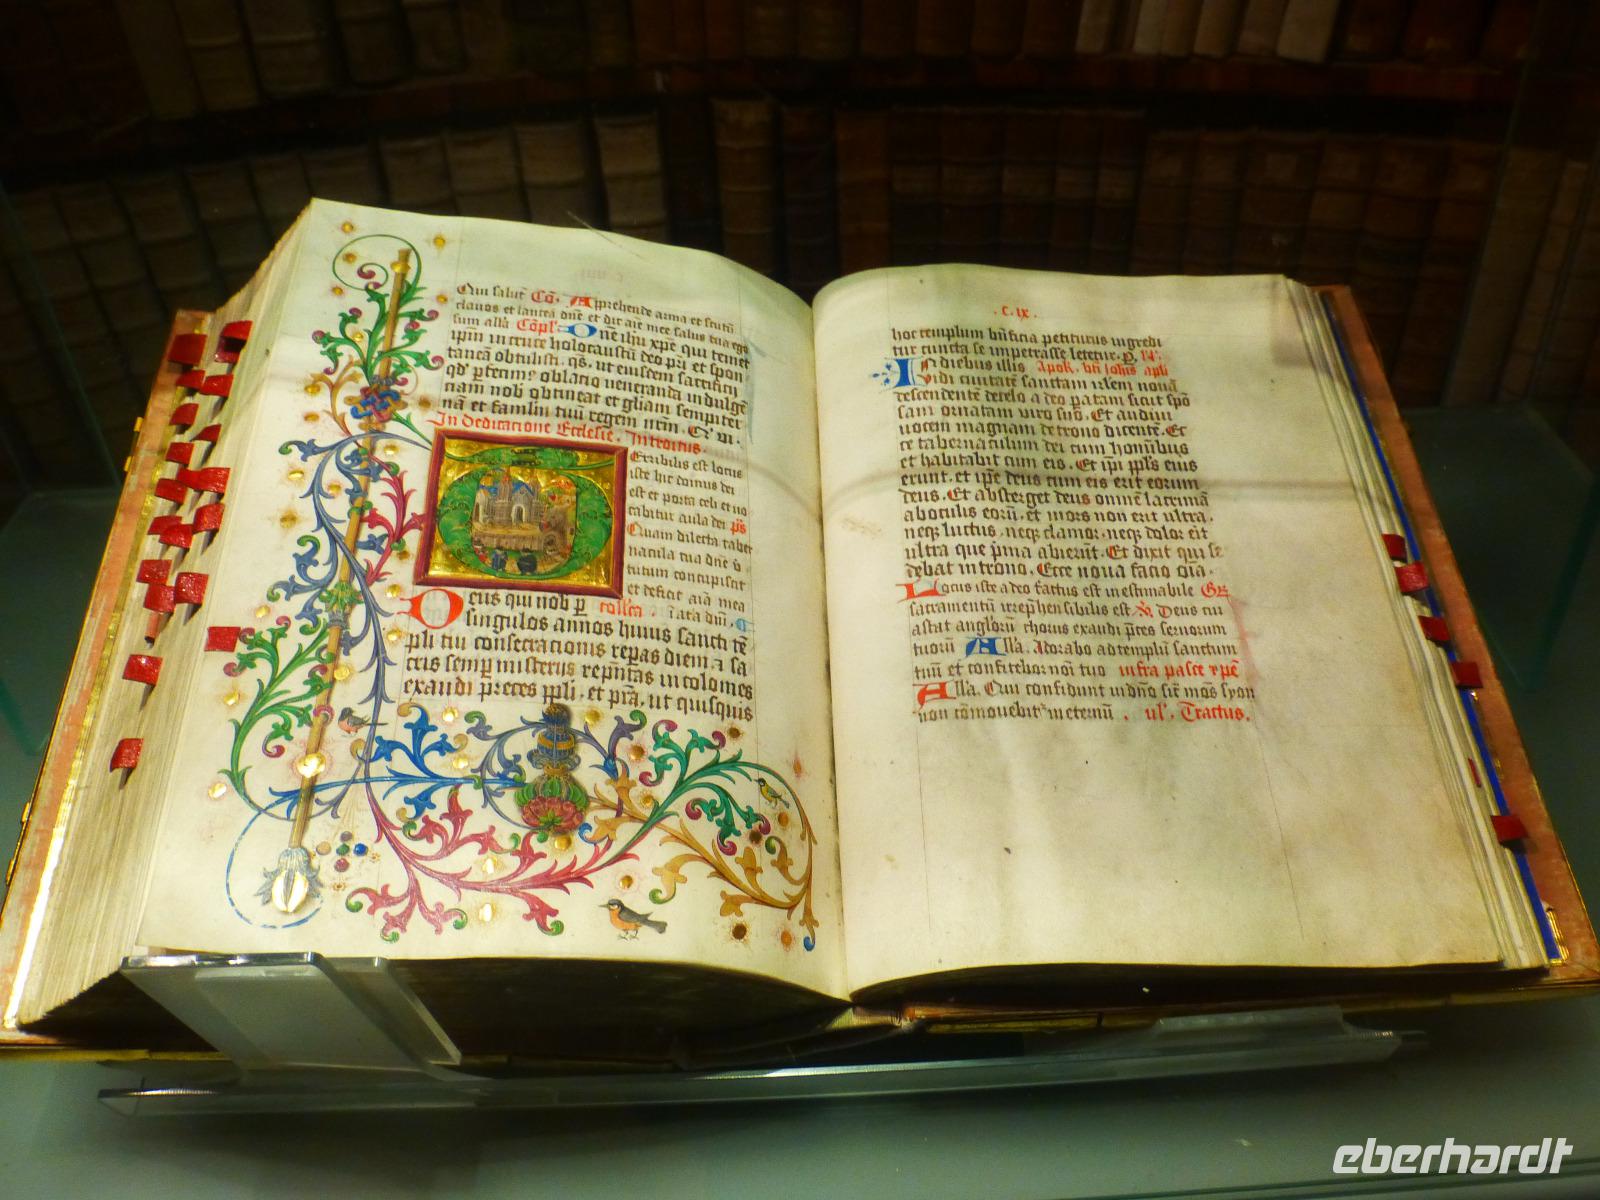 Qui salut Cō. Apprehende arma et scutū
clavos et lancea dn̄e et dic aīe mee salus tua ego
sum alla Cōpl' One ihū xp̄e qui temet
ip̄m in cruce holocaustū deo pr̄i et spon
taneā obtulisti. qs̄. ut eiusdem sacrificij
oblatio veneranda indulgē
ciam nob obtineat et gl̄iam sempiter
nā et famlm̄ tuū regem nrm̄. Et vi.
In Dedicatione Ecclesie. Introitus.
Terribilis est locus
iste hic domus dei
est et porta celi et vo
cabitur aula dei ps̄
Quam dilecta taber
nacula tua dn̄e v̄
tutum concupiscit
et deficit aīa mea
Deus qui nob p̄ coll'ca in atria dn̄i.
singulos annos huius sancti tē
pli tui consecrationis rep̄as diem. ⁊ sa
cris semp̄ misterijs rep̄n̄tas incolomes
exaudi preces pp̄li. et p̄ra. ut quisquis
.c.ix.
hoc templum bn̄ficia petiturus ingredi
tur cuncta se impetrasse letetur. p̄
In diebus illis Apok. bt̄i Joh̄is apl̄i
Vidi civitatē sanctam irl̄em novā
descendentē de celo a deo paratam sicut spō
sam ornatam viro suo. Et audivi
vocem magnam de trono dicentē. Ec
ce tabernaculum dei cum hominibus
et habitabit cum eis. Et ip̄i pp̄ls eius
erunt. et ip̄e deus cum eis erit eorum
deus. Et absterget deus omnē lacrimā
ab oculis eorū. et mors non erit ultra.
neqꝫ luctus. neqꝫ clamor. neqꝫ dolor er̄it
ultra que p̄ma abierūt. Et dixit qui se
debat in trono. Ecce nova facio oīa.
Locus iste a deo factus est inestimabile Gr.
sacramentū irrep̄hensibilis est v̄. Deus cui
astat anglorū chorus exaudi p̄ces servorum
tuorū Alla. Adorabo ad templū sanctum
tuū et confitebor nōi tuo infra pasce xp̄e
Alla. Qui confidunt in dn̄o sic̄ mōs syon
non cōmovebit̄ in eternū. vl'. Tractus.
eberhardt